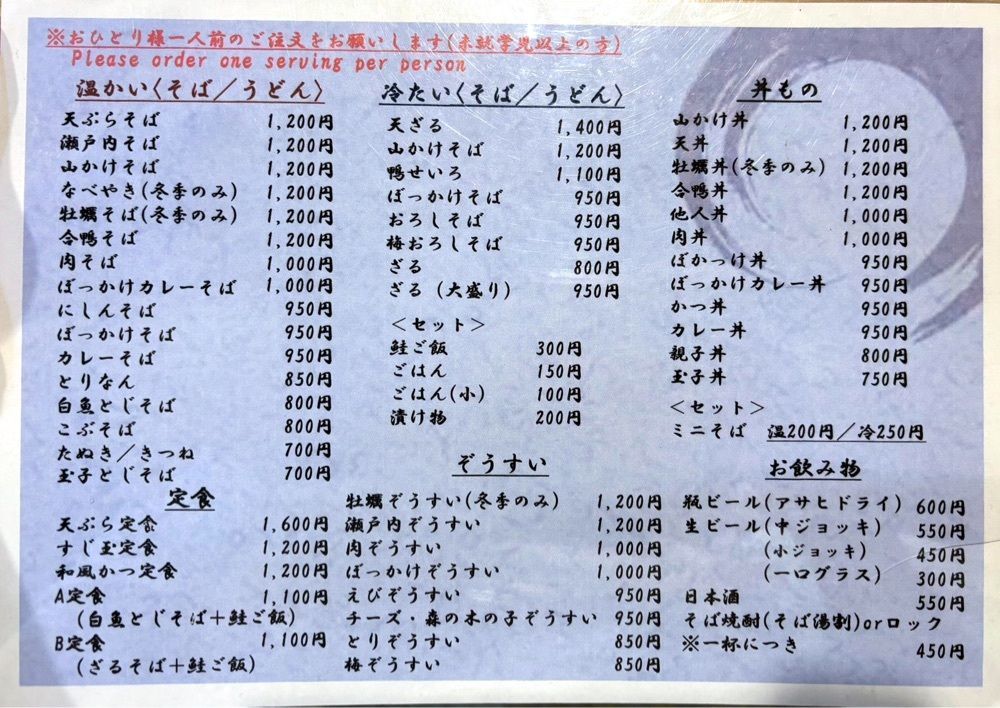 ※おひとり様一人前のご注文をお願いします(未就学児以上の方)
Please order one serving per person
温かい〈そば／うどん〉
天ぷらそば 1,200円
瀬戸内そば 1,200円
山かけそば 1,200円
なべやき(冬季のみ) 1,200円
牡蠣そば(冬季のみ) 1,200円
合鴨そば 1,200円
肉そば 1,000円
ぼっかけカレーそば 1,000円
にしんそば 950円
ぼっかけそば 950円
カレーそば 950円
とりなん 850円
白魚とじそば 800円
こぶそば 800円
たぬき／きつね 700円
玉子とじそば 700円
定食
天ぷら定食 1,600円
すじ玉定食 1,200円
和風かつ定食 1,200円
A定食 1,100円
(白魚とじそば＋鮭ご飯)
B定食 1,100円
(ざるそば＋鮭ご飯)
冷たい〈そば／うどん〉
天ざる 1,400円
山かけそば 1,200円
鴨せいろ 1,100円
ぼっかけそば 950円
おろしそば 950円
梅おろしそば 950円
ざる 800円
ざる (大盛り) 950円
＜セット＞
鮭ご飯 300円
ごはん 150円
ごはん(小) 100円
漬け物 200円
ぞうすい
牡蠣ぞうすい(冬季のみ) 1,200円
瀬戸内ぞうすい 1,200円
肉ぞうすい 1,000円
ぼっかけぞうすい 1,000円
えびぞうすい 950円
チーズ・森の木の子ぞうすい 950円
とりぞうすい 850円
梅ぞうすい 850円
丼もの
山かけ丼 1,200円
天丼 1,200円
牡蠣丼(冬季のみ) 1,200円
合鴨丼 1,200円
他人丼 1,000円
肉丼 1,000円
ぼかっけ丼 950円
ぼっかけカレー丼 950円
かつ丼 950円
カレー丼 950円
親子丼 800円
玉子丼 750円
＜セット＞
ミニそば 温200円／冷250円
お飲み物
瓶ビール(アサヒドライ) 600円
生ビール(中ジョッキ) 550円
(小ジョッキ) 450円
(一口グラス) 300円
日本酒 550円
そば焼酎(そば湯割)orロック
※一杯につき 450円